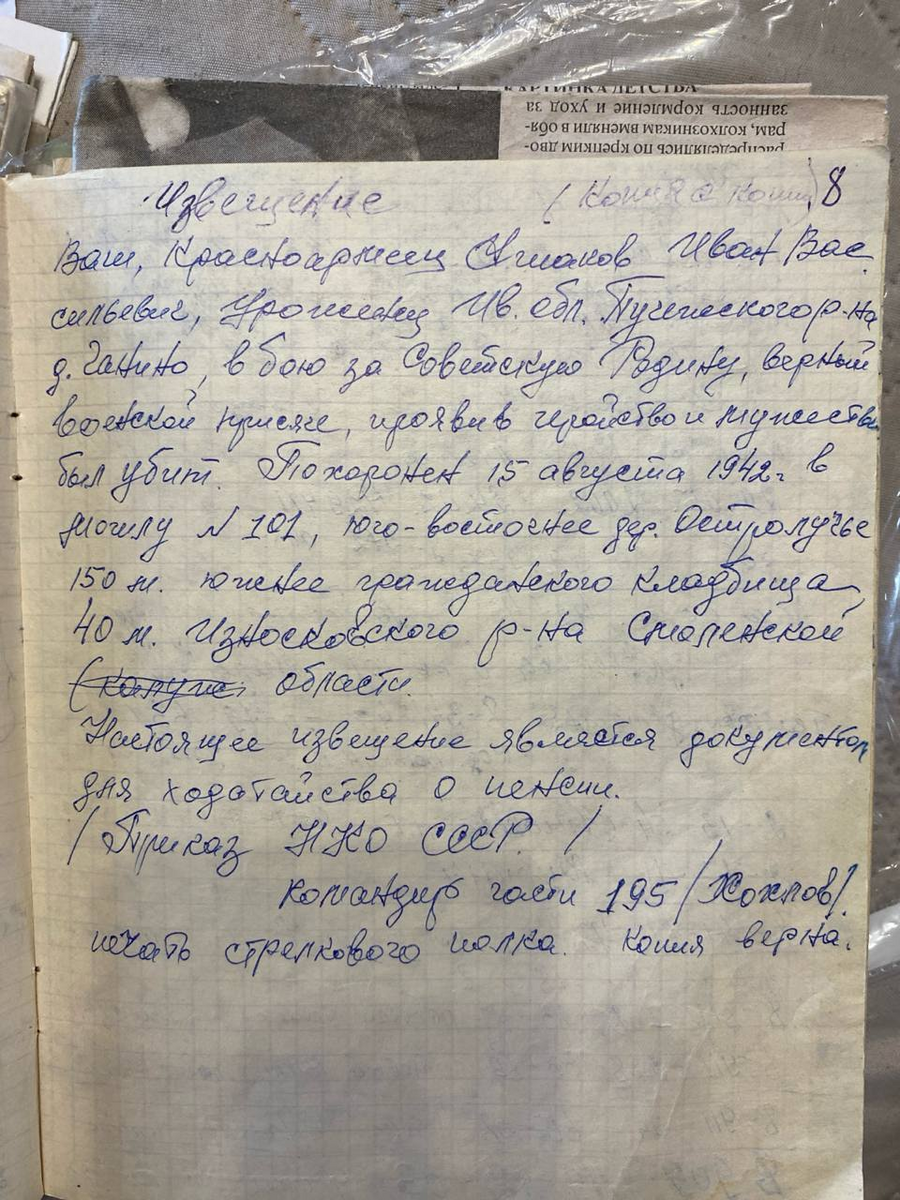 КАРТИНКА ДЕТСТВА
занность кормление и уход за
рам, колхозникам вменяли в обя-
распределялись по крепким дво-
Извещение (Копия с копии) 8
Ваш, Красноармеец Иван Вас
сильевич, Уроженец Ив. обл. Пучежского р-на
д. Ганино, в бою за Советскую Родину, верный
военской присяге, проявив геройство и мужество
был убит. Похоронен 15 августа 1942 г в
могилу № 101, юго-восточнее дер. Остролучье
150 м. южнее гражданского кладбища,
40 м. Износковского р-на Смоленской
(калужс. области.
Настоящее извещение является документом
для ходатайства о пенсии.
/Приказ НКО СССР. /
командир части 195 /Хохлов/.
печать стрелкового полка. Копия верна.